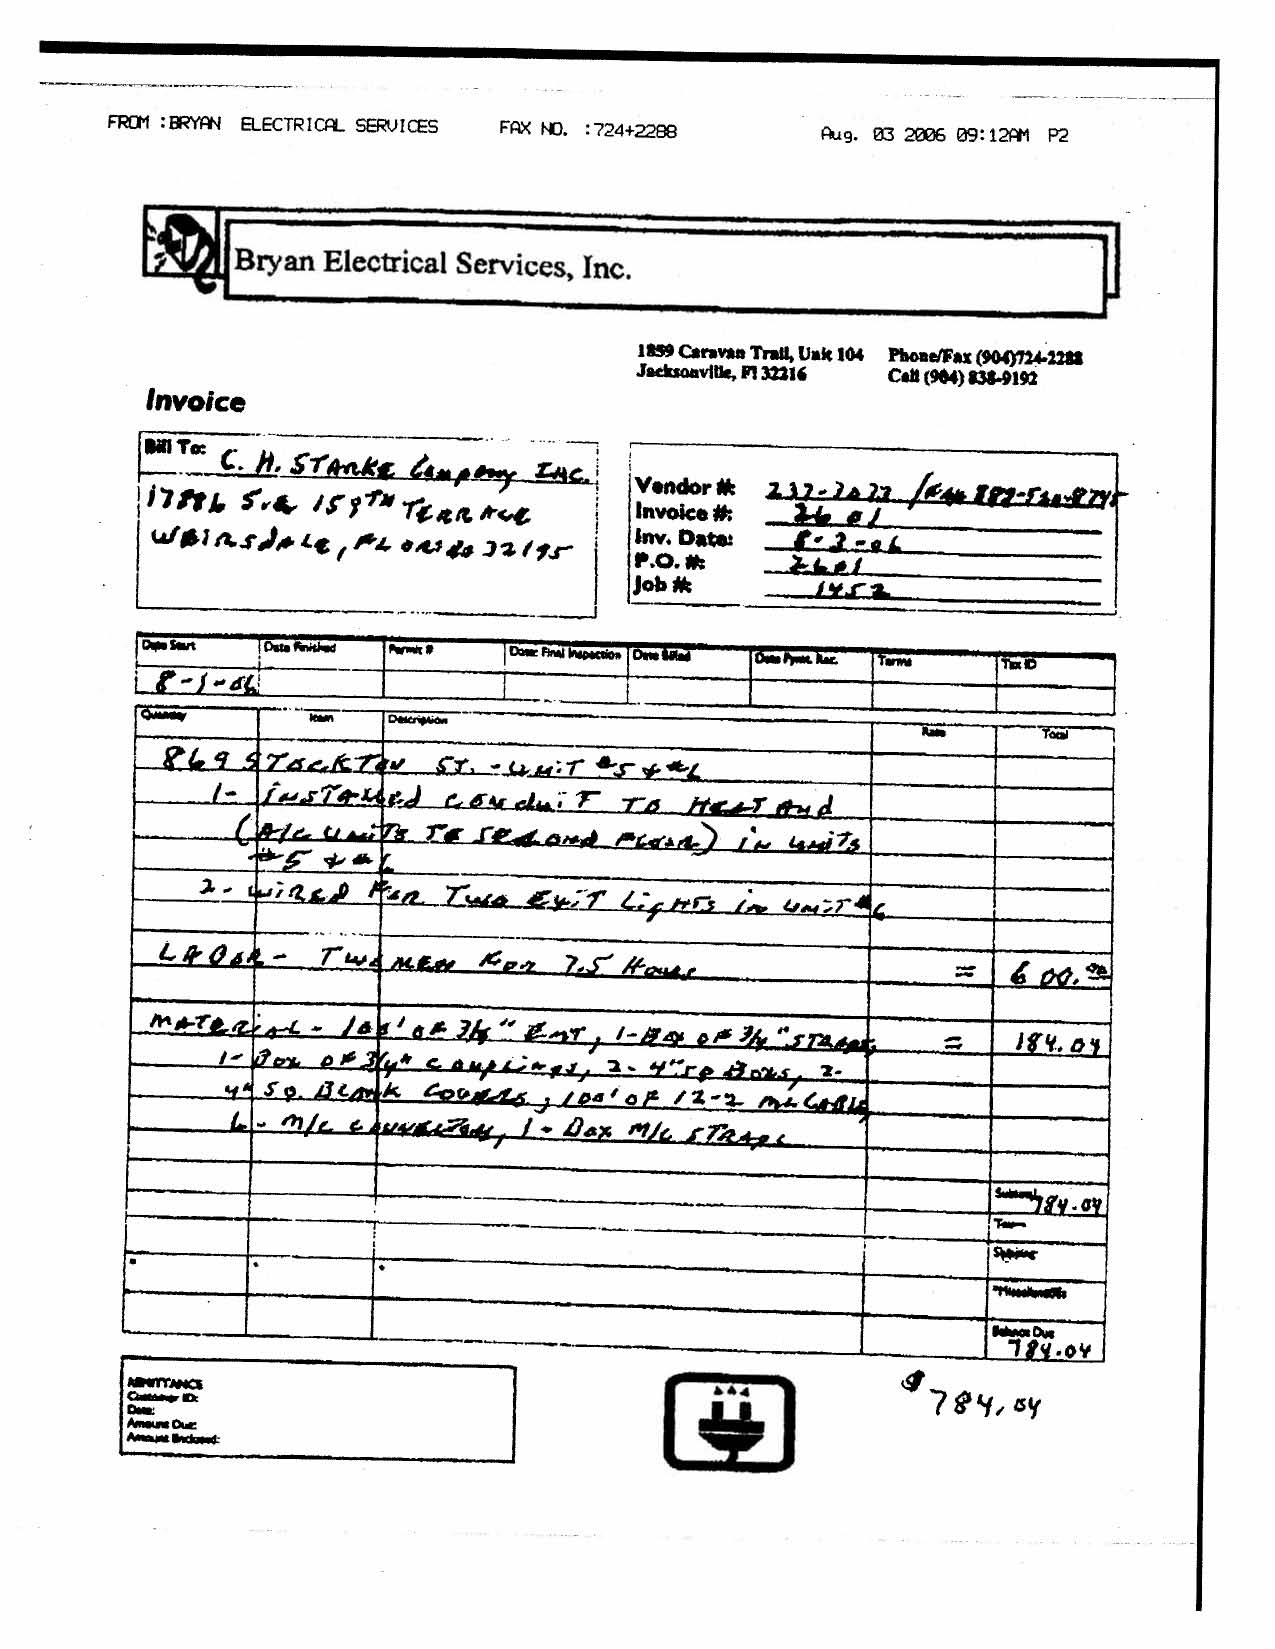 FROM :BRYAN ELECTRICAL SERVICES FAX NO. :724+2288 Aug. 03 2006 09:12AM P2
Bryan Electrical Services, Inc.
1859 Caravan Trail, Unit 104 Phone/Fax (904)724-2288
Jacksonville, Fl 32216 Call (904) 838-9192
Invoice
Bill To: C. H. STARKE Company INC.
17886 S.E 159TH TERRACE
WEIRSdALE, FLORIda 32195
Vendor #: 237-7077 /FAX
Invoice #: 2601
Inv. Date: 8-3-06
P.O. #: 2601
Job #: 1452
Date Start Date Finished Permit # Date: Final Inspection Date Billed Date Pymt. Rec. Terms Tax ID
8-1-06
Quantity Item Description Rate Total
869 STOCKTON ST. - UNIT #5 & #6
1- INSTALLED CONduiT TO HEAT ANd
(A/C UNITS TO SECOND FLOOR) iN UNiTS
#5 & #6
2- WIRED FOR TWO EXIT LigHTS IN UNIT #6
LABOR - TWO MEN FOR 7.5 HOURS = 600.00
MATERIAL - 100' OF 3/4" EMT, 1-BOX OF 3/4" STRAPS, = 184.04
1- BOX OF 3/4" COUPLINGS, 2- 4" SQ BOXS, 2-
4" SQ. BLANK COVERS, 100' OF 12-2 MC CABLE
6- M/C CONNECTORS, 1- BOX M/C STRAPS
Subtotal 784.04
Tax
Shipping
Miscellaneous
Balance Due
784.04
REMITTANCE
Customer ID:
Date:
Amount Due:
Amount Enclosed:
$ 784.04